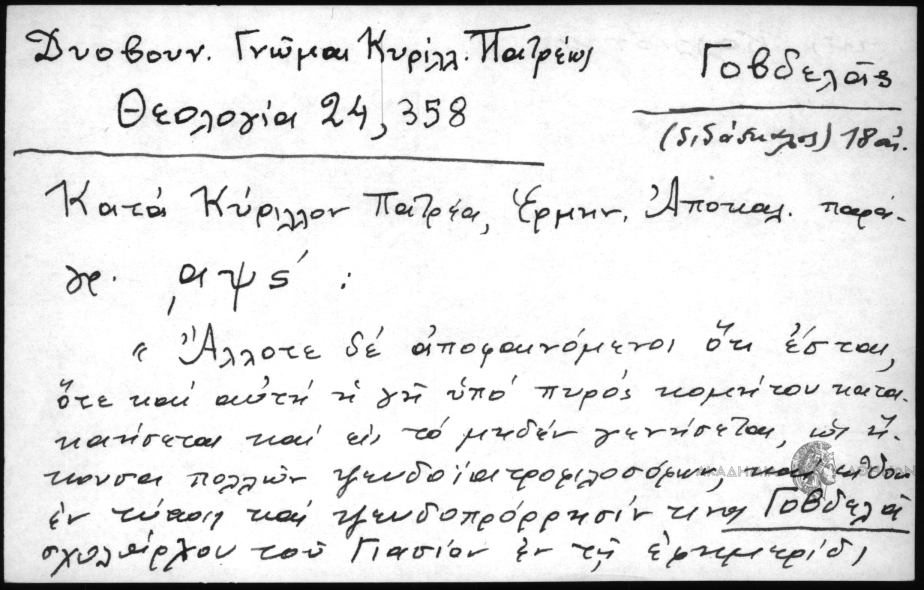 Δυοβουν. Γνῶμαι Κυρίλλ. Πατρέως
Θεολογία 24, 358
Γοβδελᾶς
(διδάσκαλος) 18 αἰ.
Κατὰ Κύριλλον Πατρέα, Ἑρμην. Ἀποκαλ. παρά-
γρ. ͵αψς΄ :
« Ἄλλοτε δέ ἀποφαινόμενοι ὅτι ἔσται,
ὅτε καί αὐτή ἡ γῆ ὑπό πυρός κομήτου κατα-
καήσεται καί εἰς τό μηδέν γενήσεται, ὡς ἤ-
κουσα πολλῶν ψευδοϊατροφιλοσόφων, καί εἶδον
ἐν τύποις καί ψευδοπρόρρησίν τινα Γοβδελᾶ
σχολάρχου τοῦ Γιασίου ἐν τῇ ἐφημερίδι